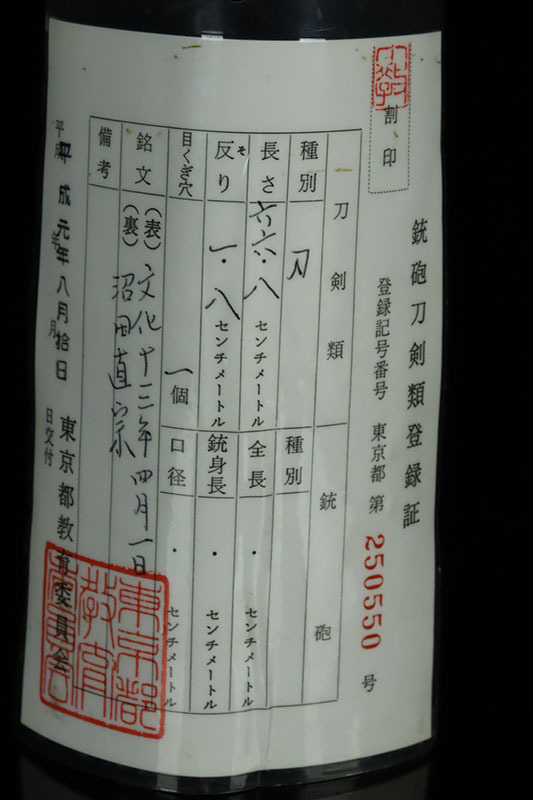 銃砲刀剣類登録証
割印
登録記号番号 東京都 第 250550 号
刀剣類
銃砲
種別 刀
種別
長さ 六六・八 センチメートル
全長 ・ センチメートル
反り そ 一・八 センチメートル
銃身長 ・ センチメートル
目くぎ穴 一個
口径 ・ センチメートル
銘文 (表) 文化十三年四月一日
(裏) 沼田直宗
備考
平成 平成元年八月拾日
年 月 日交付
東京都教育委員会
東京都教育委員会